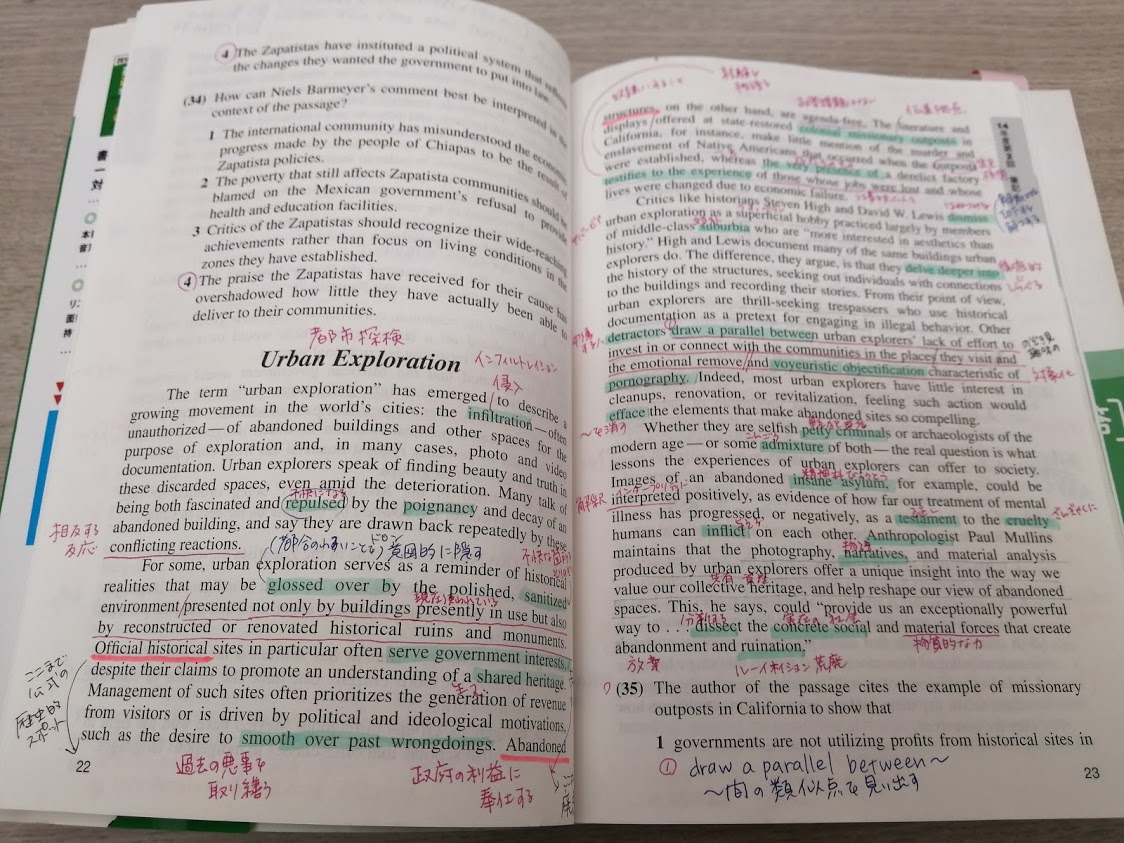 4 The Zapatistas have instituted a political system that reflects
the changes they wanted the government to put into law.
(34) How can Niels Barmeyer's comment best be interpreted in the
context of the passage?
1 The international community has misunderstood the economic
progress made by the people of Chiapas to be the result of
Zapatista policies.
2 The poverty that still affects Zapatista communities should be
blamed on the Mexican government's refusal to provide
health and education facilities.
3 Critics of the Zapatistas should recognize their wide-reaching
achievements rather than focus on living conditions in the
zones they have established.
4 The praise the Zapatistas have received for their cause has
overshadowed how little they have actually been able to
deliver to their communities.
都市探検
Urban Exploration
インフィルトレイション
侵入
The term "urban exploration" has emerged to describe a
growing movement in the world's cities: the infiltration—often
unauthorized—of abandoned buildings and other spaces for the
purpose of exploration and, in many cases, photo and video
documentation. Urban explorers speak of finding beauty and truth in
these discarded spaces, even amid the deterioration. Many talk of
being both fascinated and repulsed by the poignancy and decay of an
abandoned building, and say they are drawn back repeatedly by these
conflicting reactions.
相反する
反応
意図的に隠す
For some, urban exploration serves as a reminder of historical
realities that may be glossed over by the polished, sanitized
environment presented not only by buildings presently in use but also
by reconstructed or renovated historical ruins and monuments.
Official historical sites in particular often serve government interests,
despite their claims to promote an understanding of a shared heritage.
Management of such sites often prioritizes the generation of revenue
from visitors or is driven by political and ideological motivations,
such as the desire to smooth over past wrongdoings. Abandoned
ここまで
公式の
歴史的
スポット
22
過去の悪事を
取り繕う
政府の利益に
奉仕する
structures, on the other hand, are agenda-free. The literature and
displays offered at state-restored colonial missionary outposts in
California, for instance, make little mention of the murder and
enslavement of Native Americans that occurred when the outposts
were established, whereas the very presence of a derelict factory
testifies to the experience of those whose jobs were lost and whose
lives were changed due to economic failure.
Critics like historians Steven High and David W. Lewis dismiss
urban exploration as a superficial hobby practiced largely by members
of middle-class suburbia who are "more interested in aesthetics than
history." High and Lewis document many of the same buildings urban
explorers do. The difference, they argue, is that they delve deeper into
the history of the structures, seeking out individuals with connections
to the buildings and recording their stories. From their point of view,
urban explorers are thrill-seeking trespassers who use historical
documentation as a pretext for engaging in illegal behavior. Other
detractors draw a parallel between urban explorers' lack of effort to
invest in or connect with the communities in the places they visit and
the emotional remove and voyeuristic objectification characteristic of
pornography. Indeed, most urban explorers have little interest in
cleanups, renovation, or revitalization, feeling such action would
efface the elements that make abandoned sites so compelling.
～を消す
Whether they are selfish petty criminals or archaeologists of the
modern age—or some admixture of both—the real question is what
lessons the experiences of urban explorers can offer to society.
Images of an abandoned insane asylum, for example, could be
interpreted positively, as evidence of how far our treatment of mental
illness has progressed, or negatively, as a testament to the cruelty
humans can inflict on each other. Anthropologist Paul Mullins
maintains that the photography, narratives, and material analysis
produced by urban explorers offer a unique insight into the way we
value our collective heritage, and help reshape our view of abandoned
spaces. This, he says, could "provide us an exceptionally powerful
way to . . . dissect the concrete social and material forces that create
abandonment and ruination."
放棄
ルーイネイション 荒廃
物質的な力
(35) The author of the passage cites the example of missionary
outposts in California to show that
1 governments are not utilizing profits from historical sites in
① draw a parallel between～
～間の類似点を見い出す
23
14年度第2回 筆記